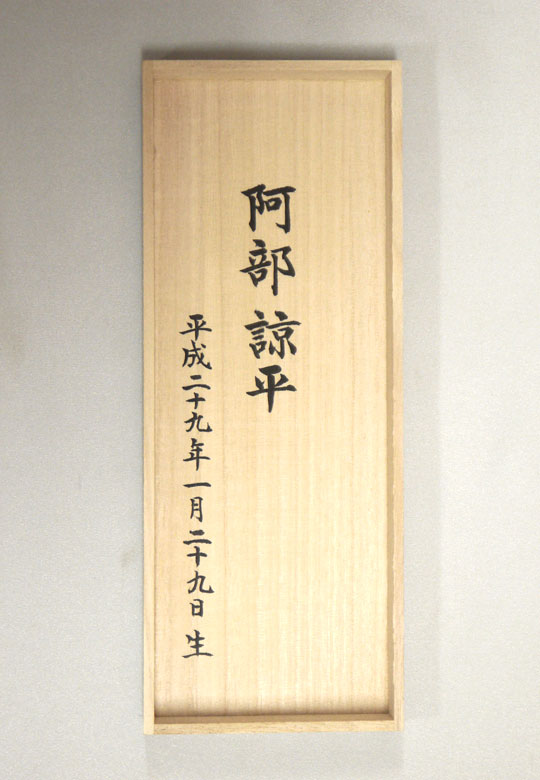 阿部 諒平
平成二十九年一月二十九日 生